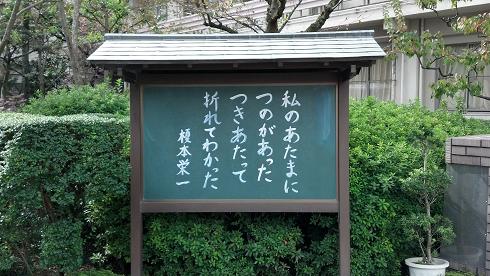 私のあたまに
つのがあった
つきあたって
折れてわかった
榎本栄一